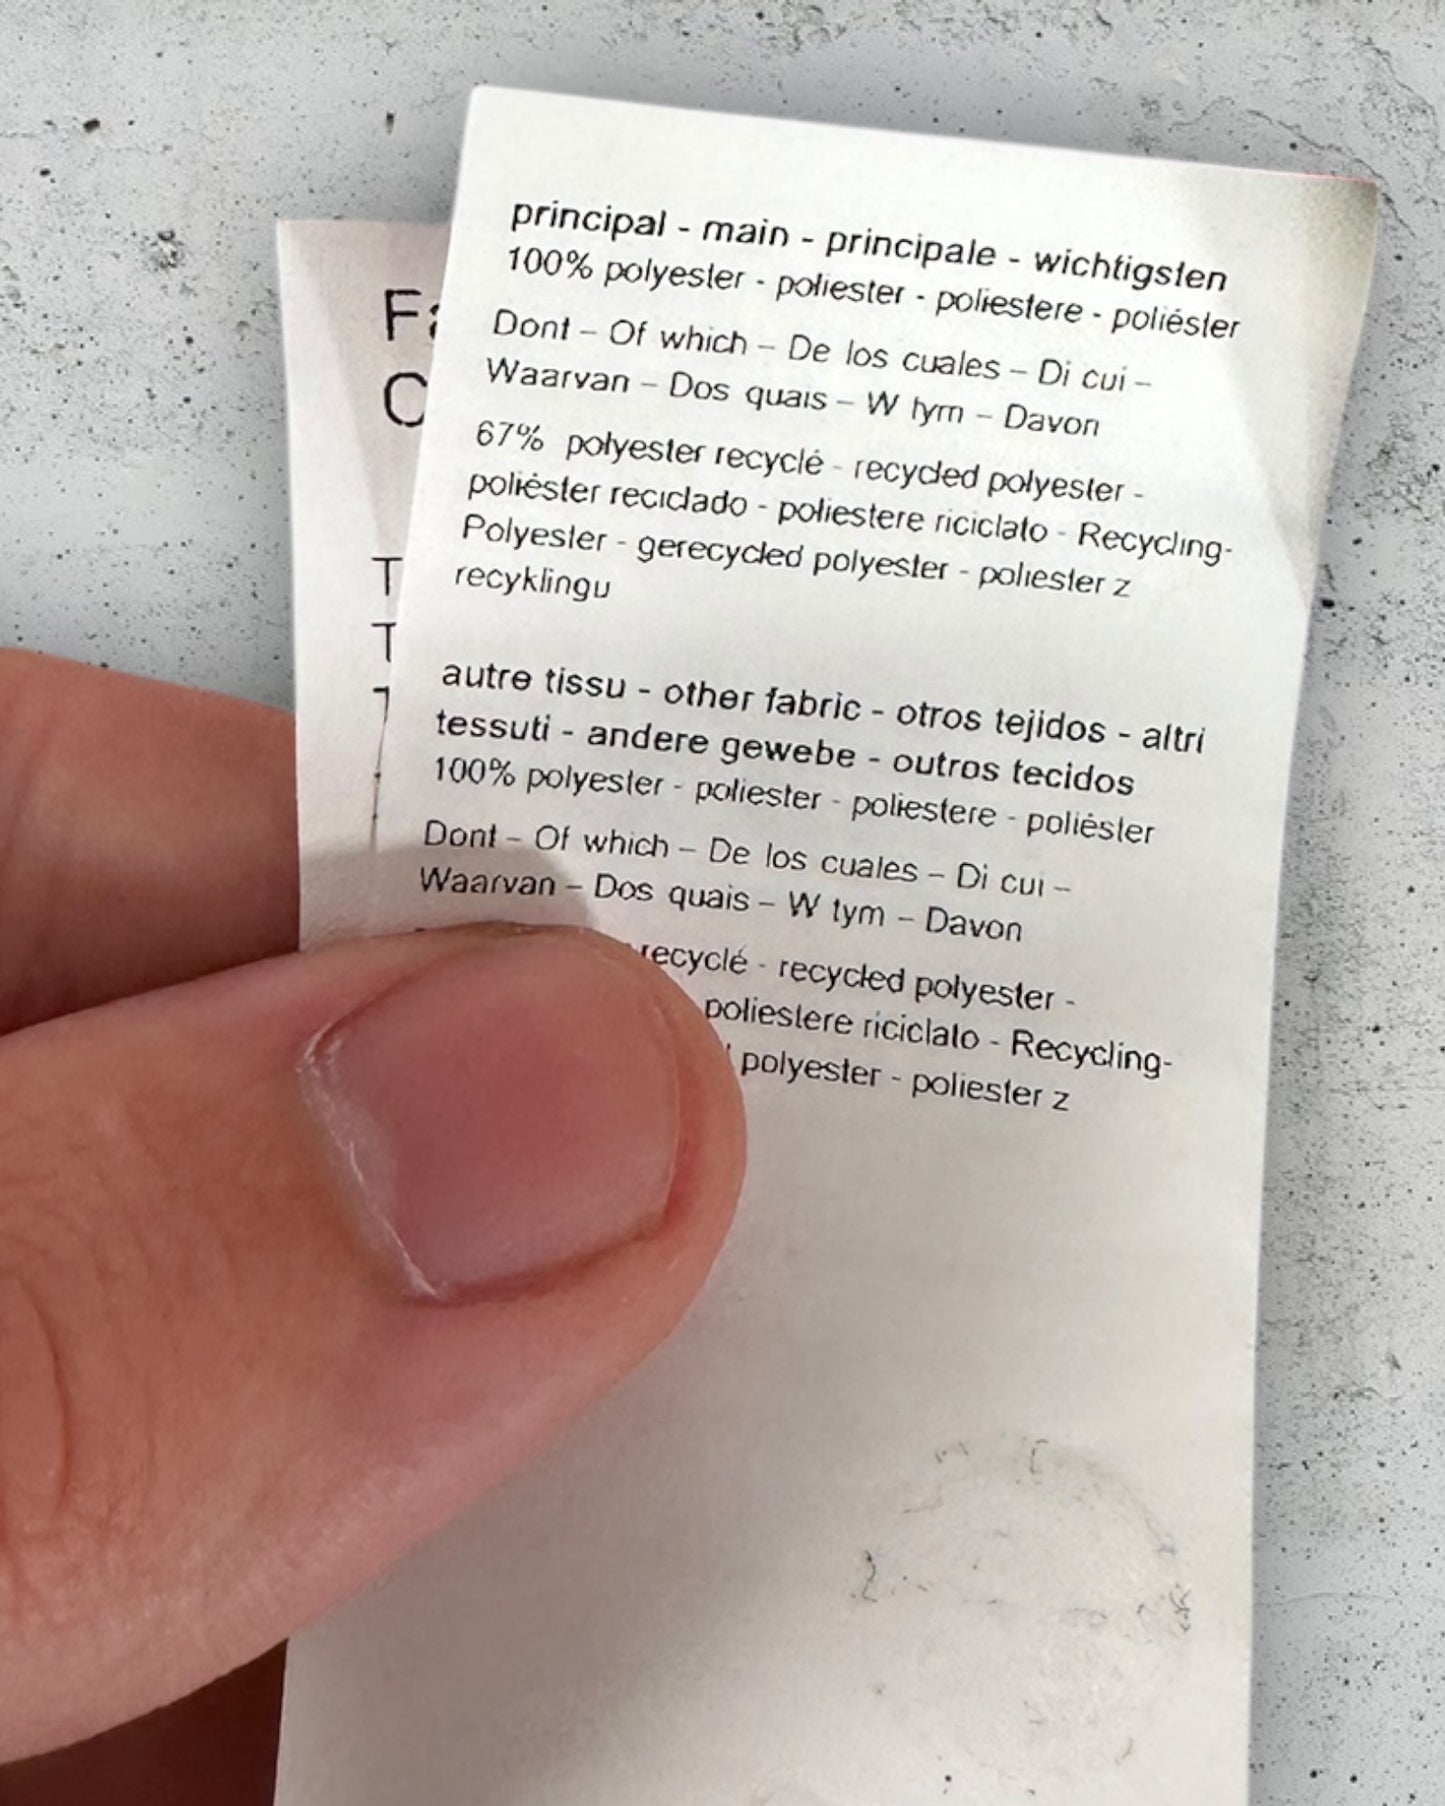 principal - main - principale - wichtigsten
100% polyester - poliester - poliestere - poliéster
Dont – Of which – De los cuales – Di cui –
Waarvan – Dos quais – W tym – Davon
67% polyester recyclé - recycled polyester -
poliéster reciclado - poliestere riciclato - Recycling-
Polyester - gerecycled polyester - poliester z
recyklingu
autre tissu - other fabric - otros tejidos - altri
tessuti - andere gewebe - outros tecidos
100% polyester - poliester - poliestere - poliéster
Dont – Of which – De los cuales – Di cui –
Waarvan – Dos quais – W tym – Davon
recyclé - recycled polyester -
poliestere riciclato - Recycling-
polyester - poliester z